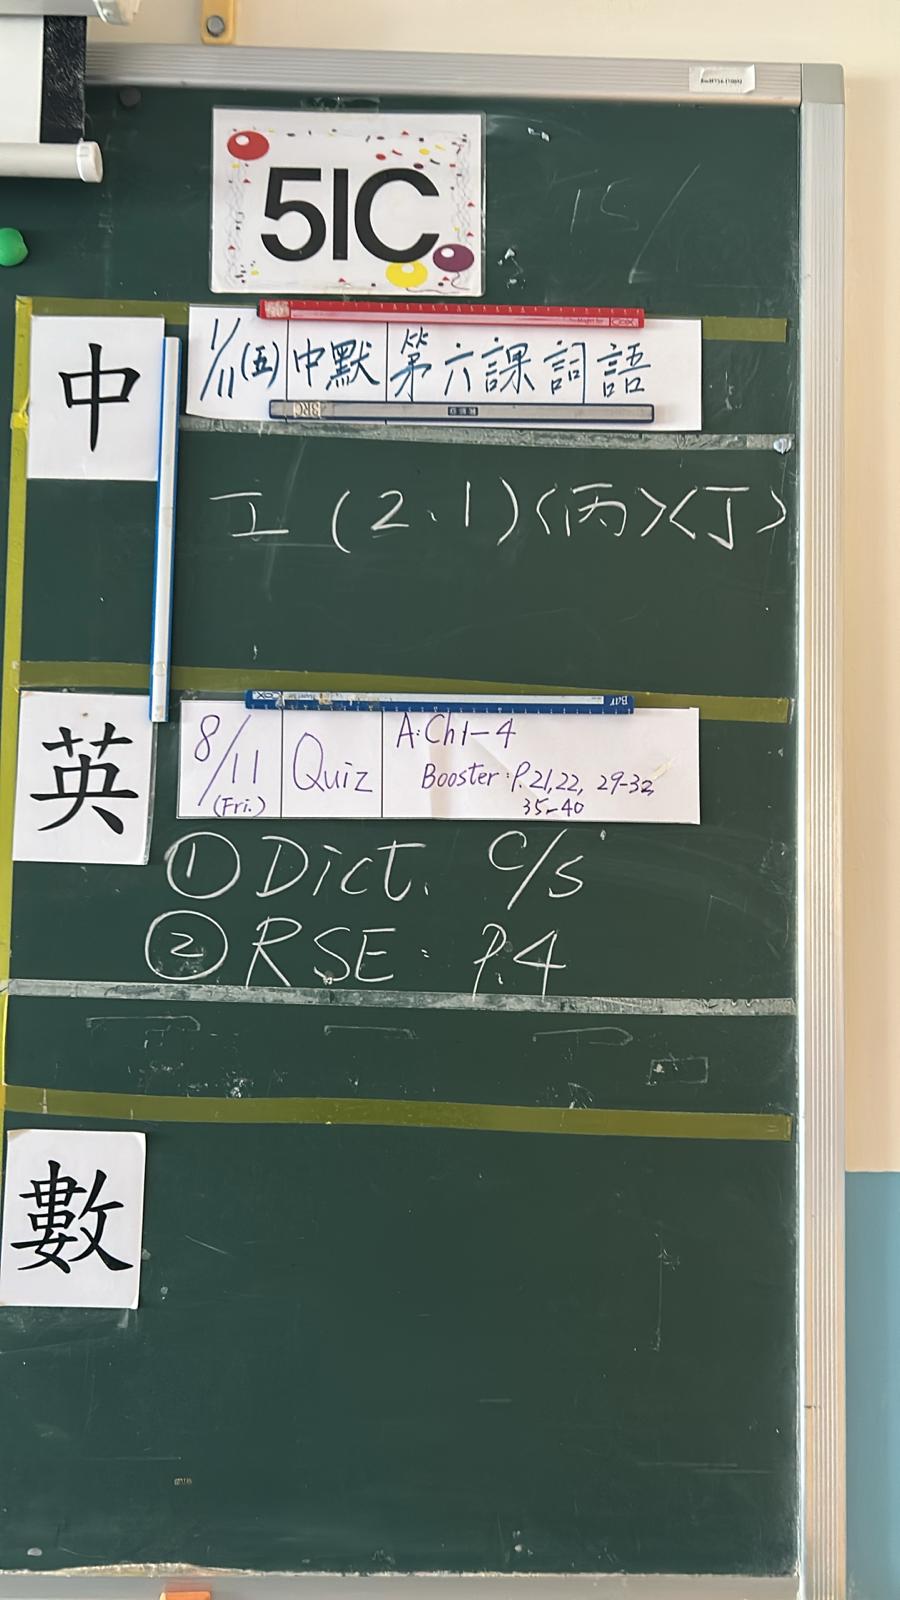 5IC
15/
中
1/11(五) 中默 第六課詞語
工 (2.1)<丙><丁>
英
8/11 (Fri.) Quiz A: Ch1-4
Booster: P.21,22, 29-32,
35-40
① Dict. C/S
② RSE: P.4
數